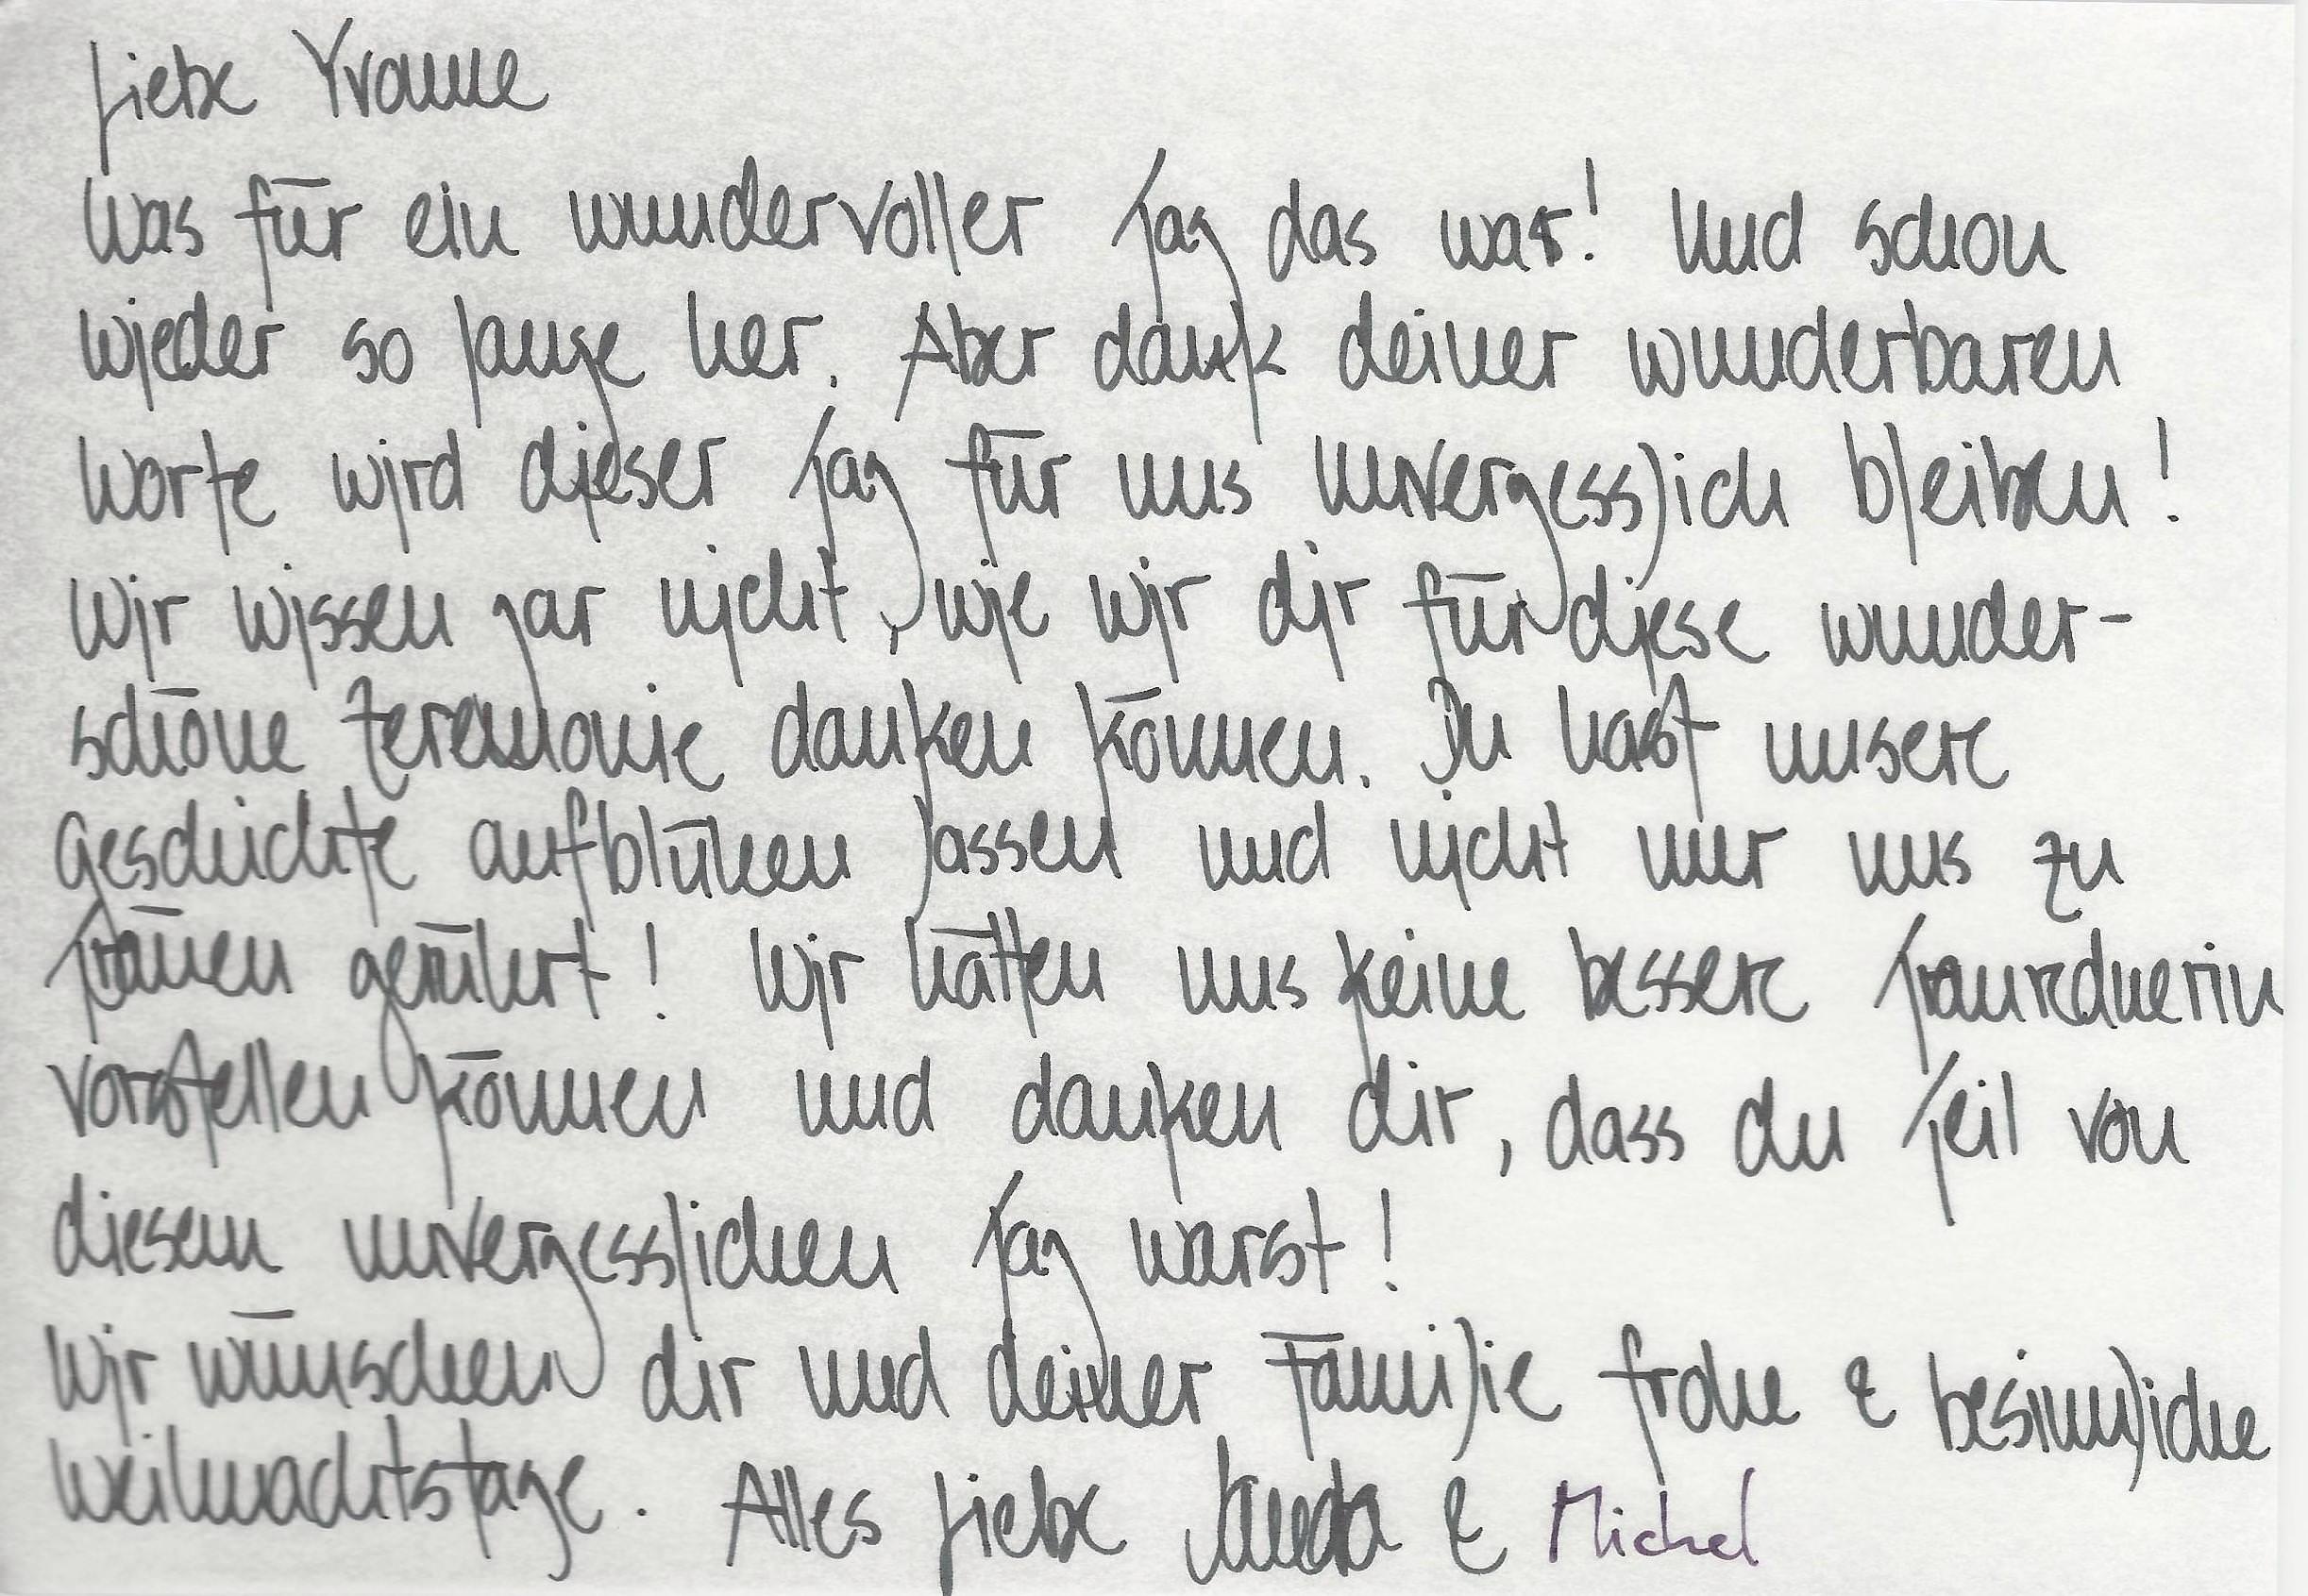 Liebe Yvonne
Was für ein wundervoller Tag das war! Und schon
wieder so lange her. Aber dank deiner wunderbaren
Worte wird dieser Tag für uns unvergesslich bleiben!
Wir wissen gar nicht, wie wir dir für diese wunder-
schöne Zeremonie danken können. Du hast unsere
Geschichte aufblühen lassen und nicht nur uns zu
Tränen gerührt! Wir hätten uns keine bessere Traurednerin
vorstellen können und danken dir, dass du Teil von
diesem unvergesslichen Tag warst!
Wir wünschen dir und deiner Familie frohe & besinnliche
Weihnachtstage. Alles Liebe & Michel